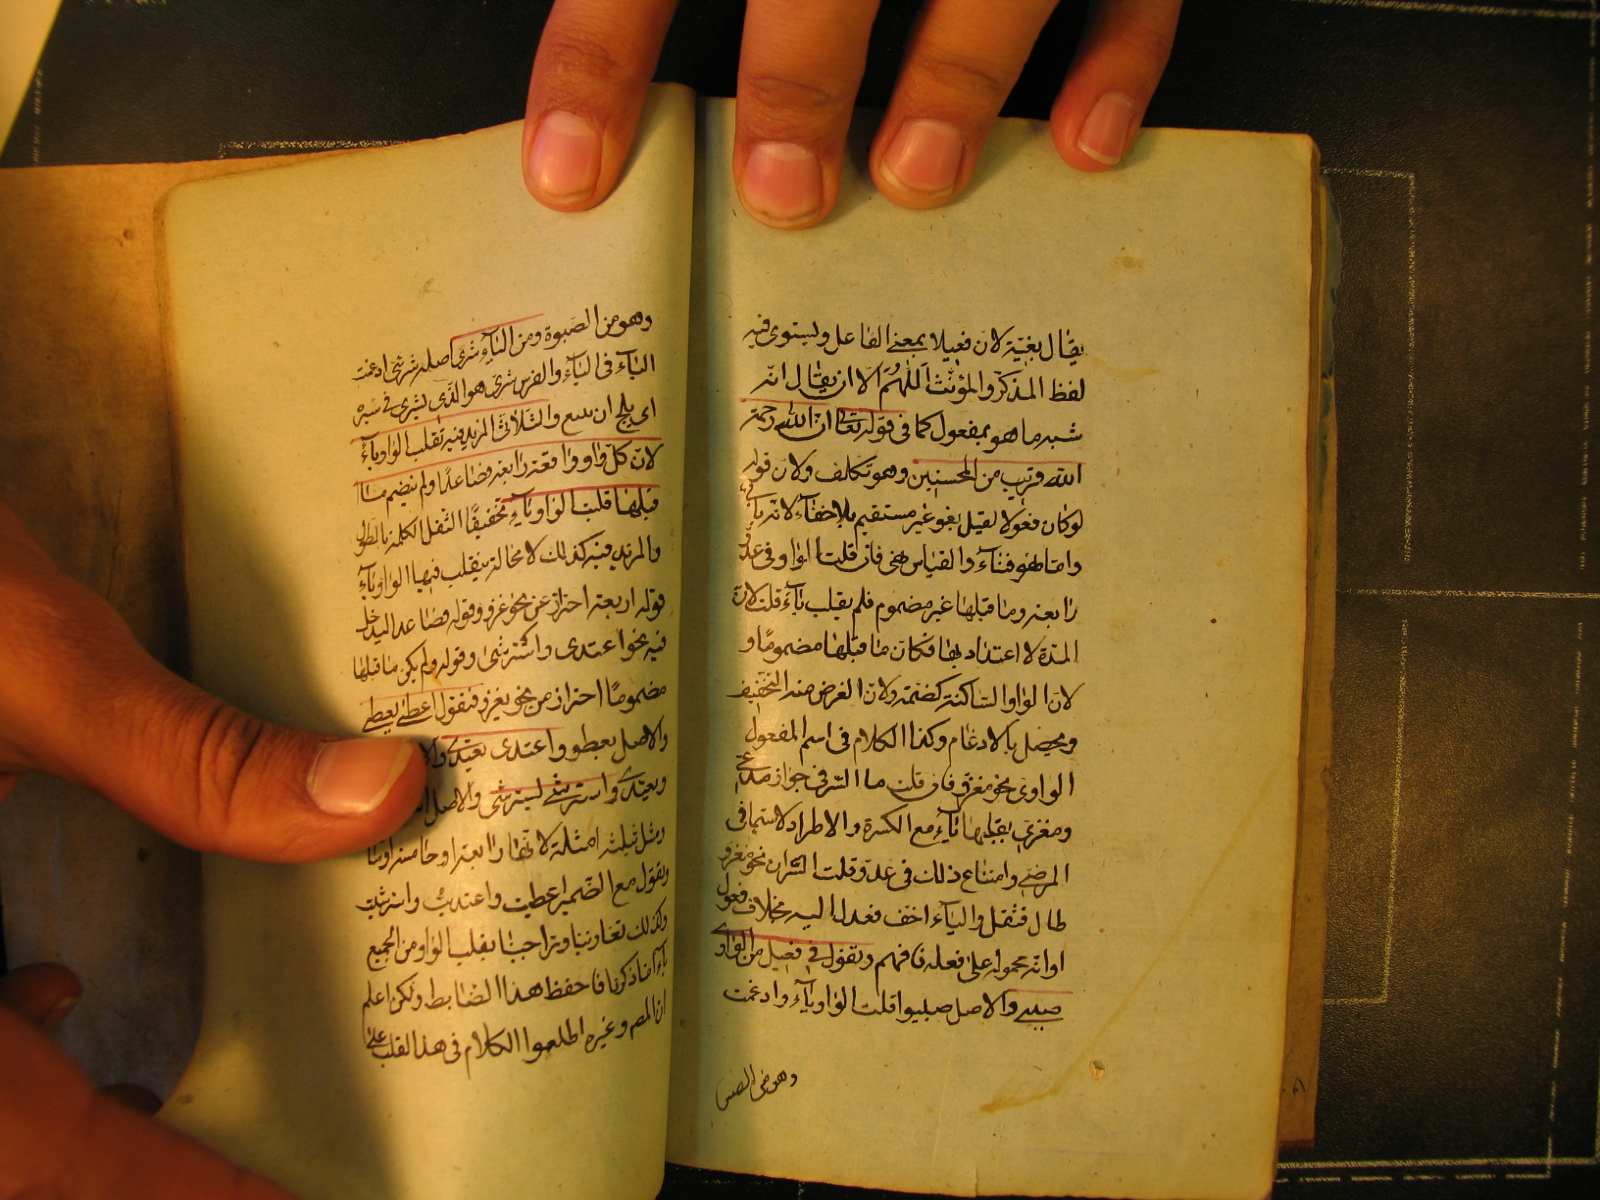 يقال بغية لان فعيلا بمعنى الفاعل ولا يستوى فيه
لفظ المذكر والمؤنث اللهم الا ان يقال انه
شبه بما هو بمفعول كما فى قوله تعالى ان الله رحمة
الله قريب من المحسنين وهو تكلف ولان قوله
لوكان فعولا لقيل بغو غير مستقيم بلا خفاء لانه يآئى
واما طهو فشاذ والقياس طهى فان قلت الواو فى عدو
رابعة وما قبلها غير مضموم فلم يقلب ياء قلت لان
المدة لا اعتداد بها فكان ما قبلها مضموما و
لان الواو الساكنة كضمة ولان الغرض منه التخفيف
ويحصل بالادغام وكذا الكلام فى اسم المفعول
الواوى نحو مغزو فان قلت ما السر فى جواز مدعى
ومغزى بقلبها ياء مع الكسرة والاطراد لاسيما فى
المرضى وامتناع ذلك فى عدو قلت السران نحو مغزو
طال فثقل والياء اخف فعدل اليه بخلاف فعول
او انه محمول على فعله فافهم وتقول فى فعيل من الواو
صبى والاصل صبيوا قلت الواو ياء وادغمت
وهو من الصبوة
وهو من الصبوة ومن الياء شرى اصله شريى ادغمت
الياء فى الياء والفرس شرى هو الذى يشرى فى سيره
اى يلج ان والثلاثى المزيد فيه تقلب الواو ياء
لان كل واو وقعت رابعة فصاعدا ولم ينضم ما
قبلها قلبت الواو ياء تخفيفا لثقل الكلمة بالطول
والمزيد فيه كذلك لا محالة فيقلب فيها الواو ياء
قوله اربعة احتراز عن نحو غزو وقوله فصاعدا ليدخل
فيه نحو اعتدى واسترشى وقوله ولم يكن ما قبلها
مضموما احتراز من نحو يغزو فنقول اعطى يعطى
والاصل يعطو واعتدى يعتدى والا
ويعتدى واسترشى يسترشى والاصل
ومثل ثلثة امثلة لانها رابعة او خامسة او
وتقول مع الضمير اعطيت واعتديت واسترشيت
وكذلك تغازينا وتراجينا بقلب الواو من الجميع
ياء لما ذكرنا فاحفظ هذا الضابط ولكن اعلم
ان المص وغيره اطلعوا الكلام فى هذا القلب على